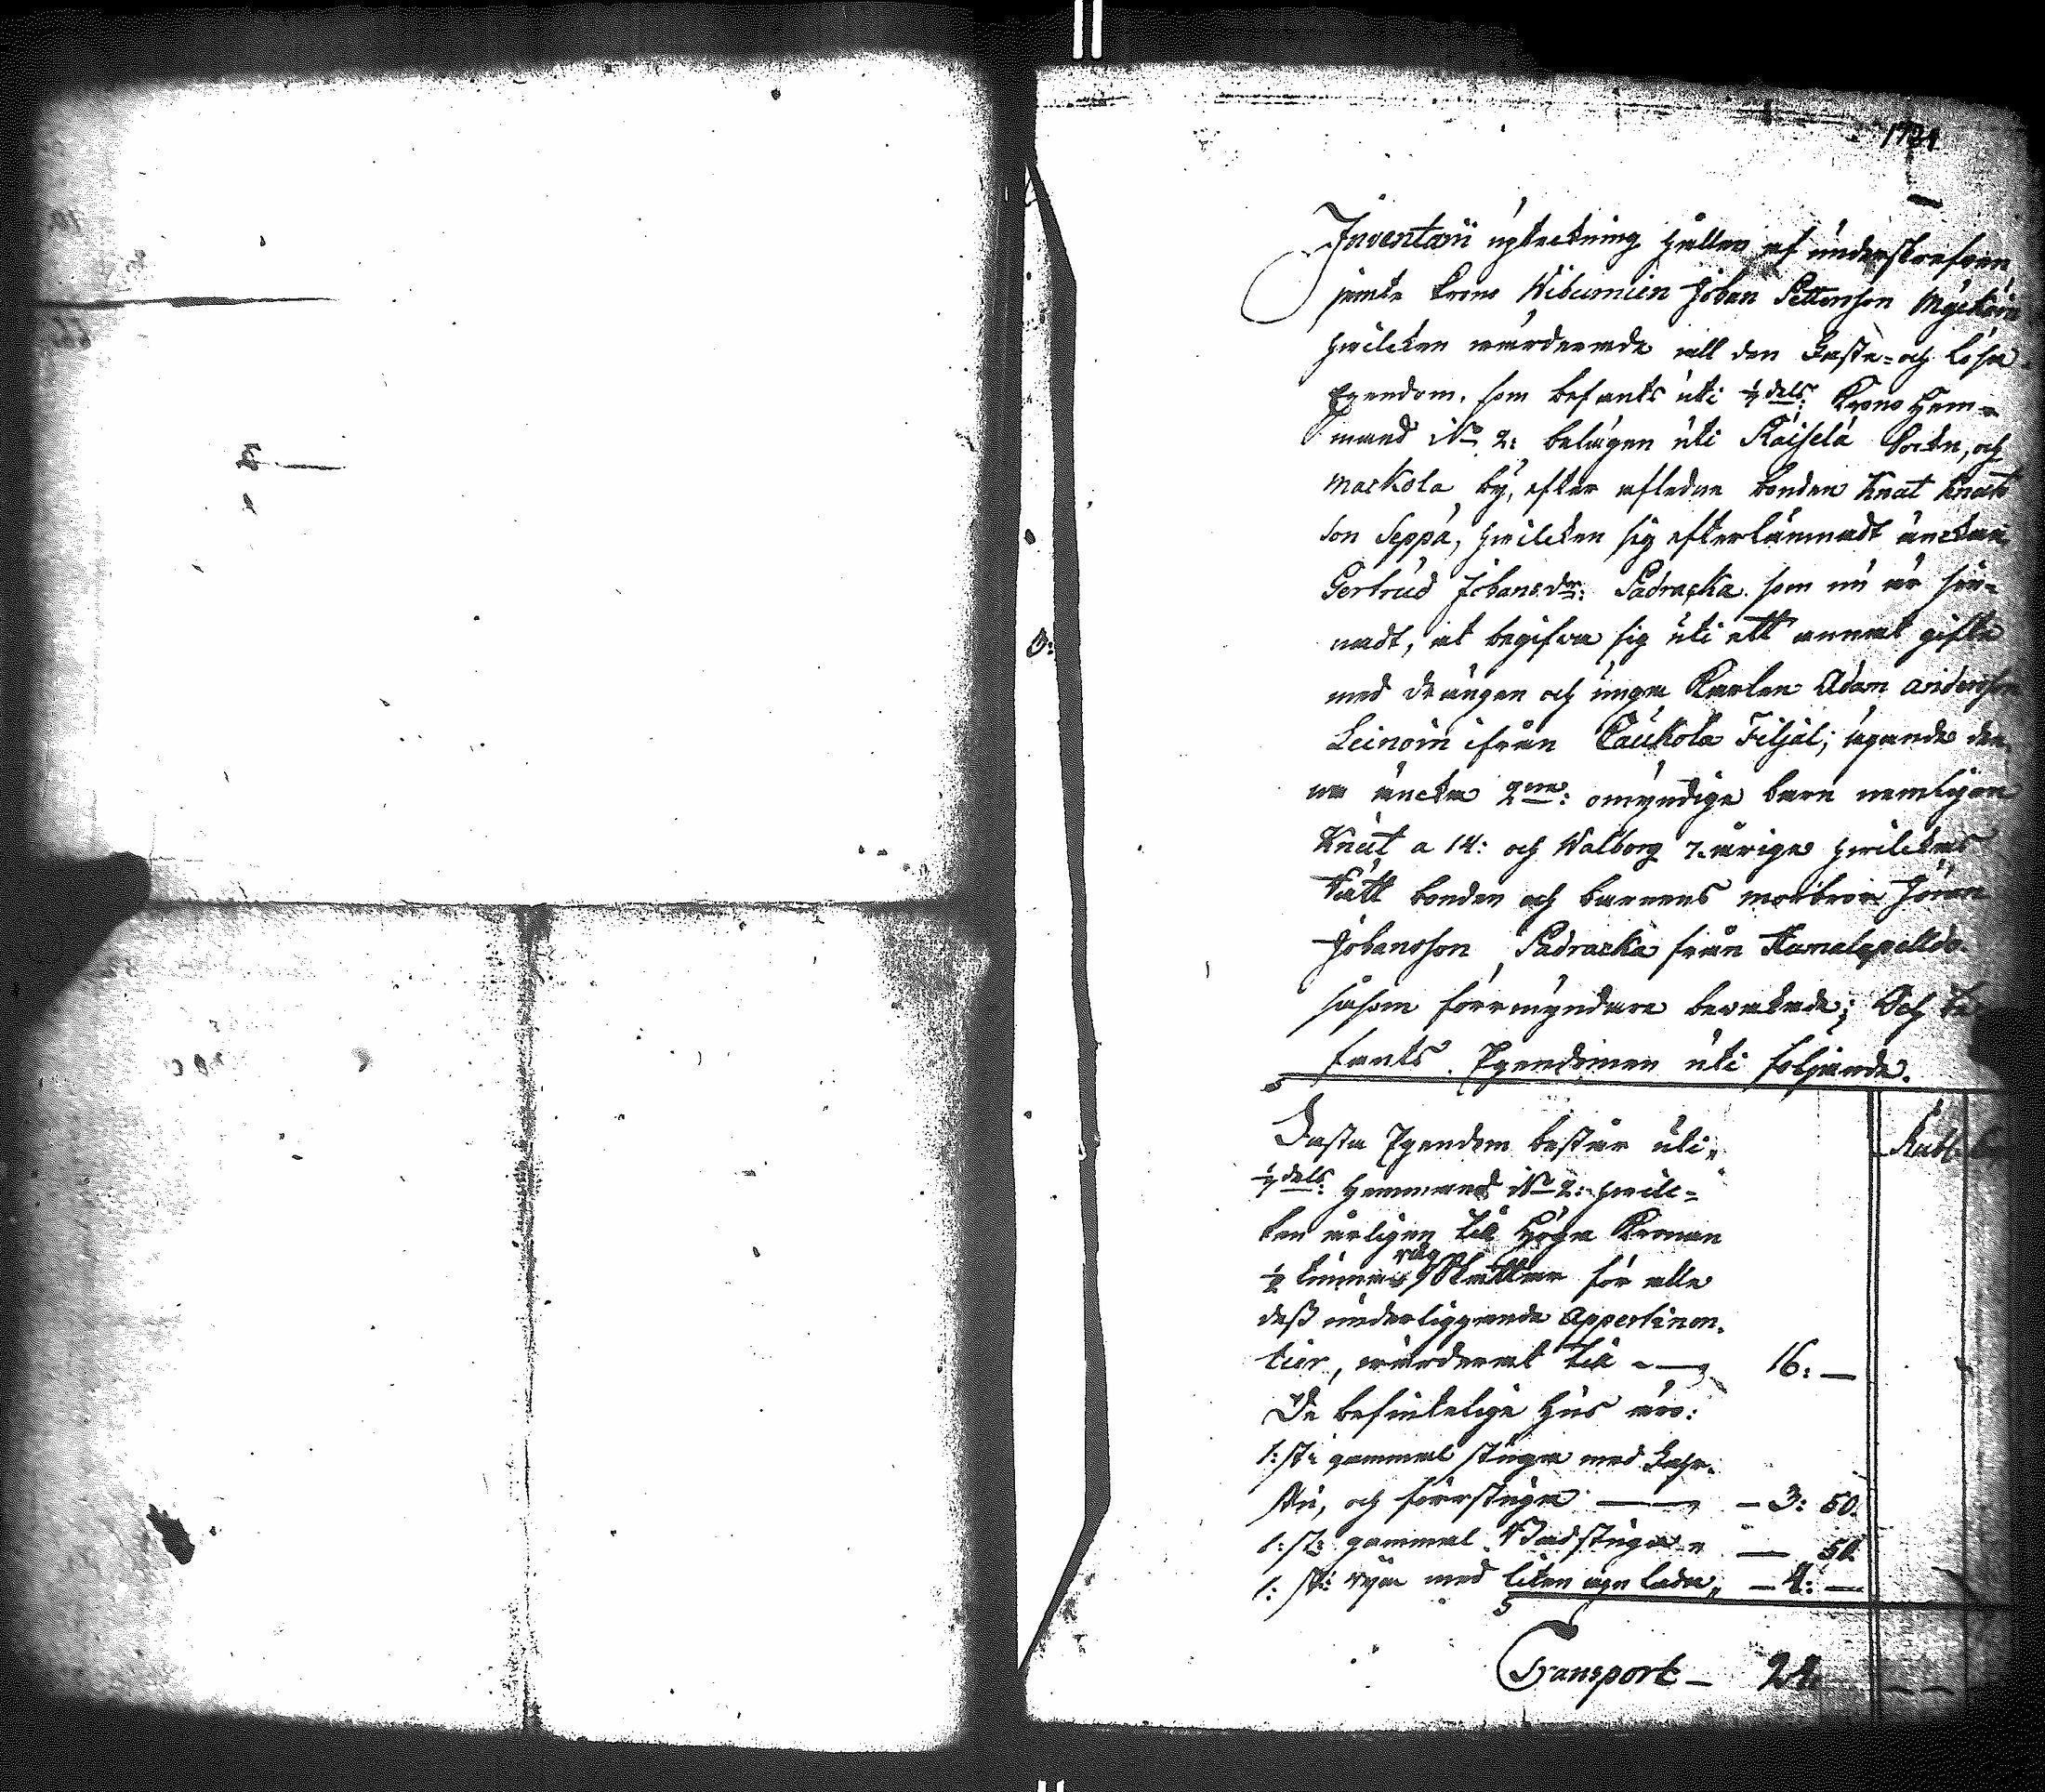 Inventarii upteckning hållen af underskrefven
jemte Krono Nämndeman Johan Pettersson
hvilcken värderade all den Fasta- och Lösa
Egendom, som befants uti ½ dels: Krono Hem-
mand No 2: belägen uti Räisälä Sockn, och
Markola by, efter afledne bonden Knut Knuts
son Seppä, hvilcken sig efterlämnadt änckan
Gertrud Johansdr: Sadracka som nu är sin-
nadt, at begifva sig uti ett annat gifte
med drängen och unga Karlen Adam Andersson
Leinoin ifrån Kaukola Filjal; ägande den-
na äncka 2ne: omyndige barn nemligen
Knut a 14: och Walborg 7: årige hvilckas
rätt bonden och barnens morbror Jöran
Johansson Sadracka från
såsom förmyndare bevakade; Och be
fants Egendomen uti följande.
Fasta Egendom består uti
½ dels: Hemmand No 2: hvilc-
ken årligen till Höga Kronan
råg
½ tunna Skattar för alla
dess underliggande Appertinen-
tier, värderat till 16: —
De befintelige Hus äro:
1: st: gammal stuga med
stu, och förrstuga — 3: 50.
1: st: gammal Badstuga — 50
1: st: med liten agnlada — 4: —
Transport — 24